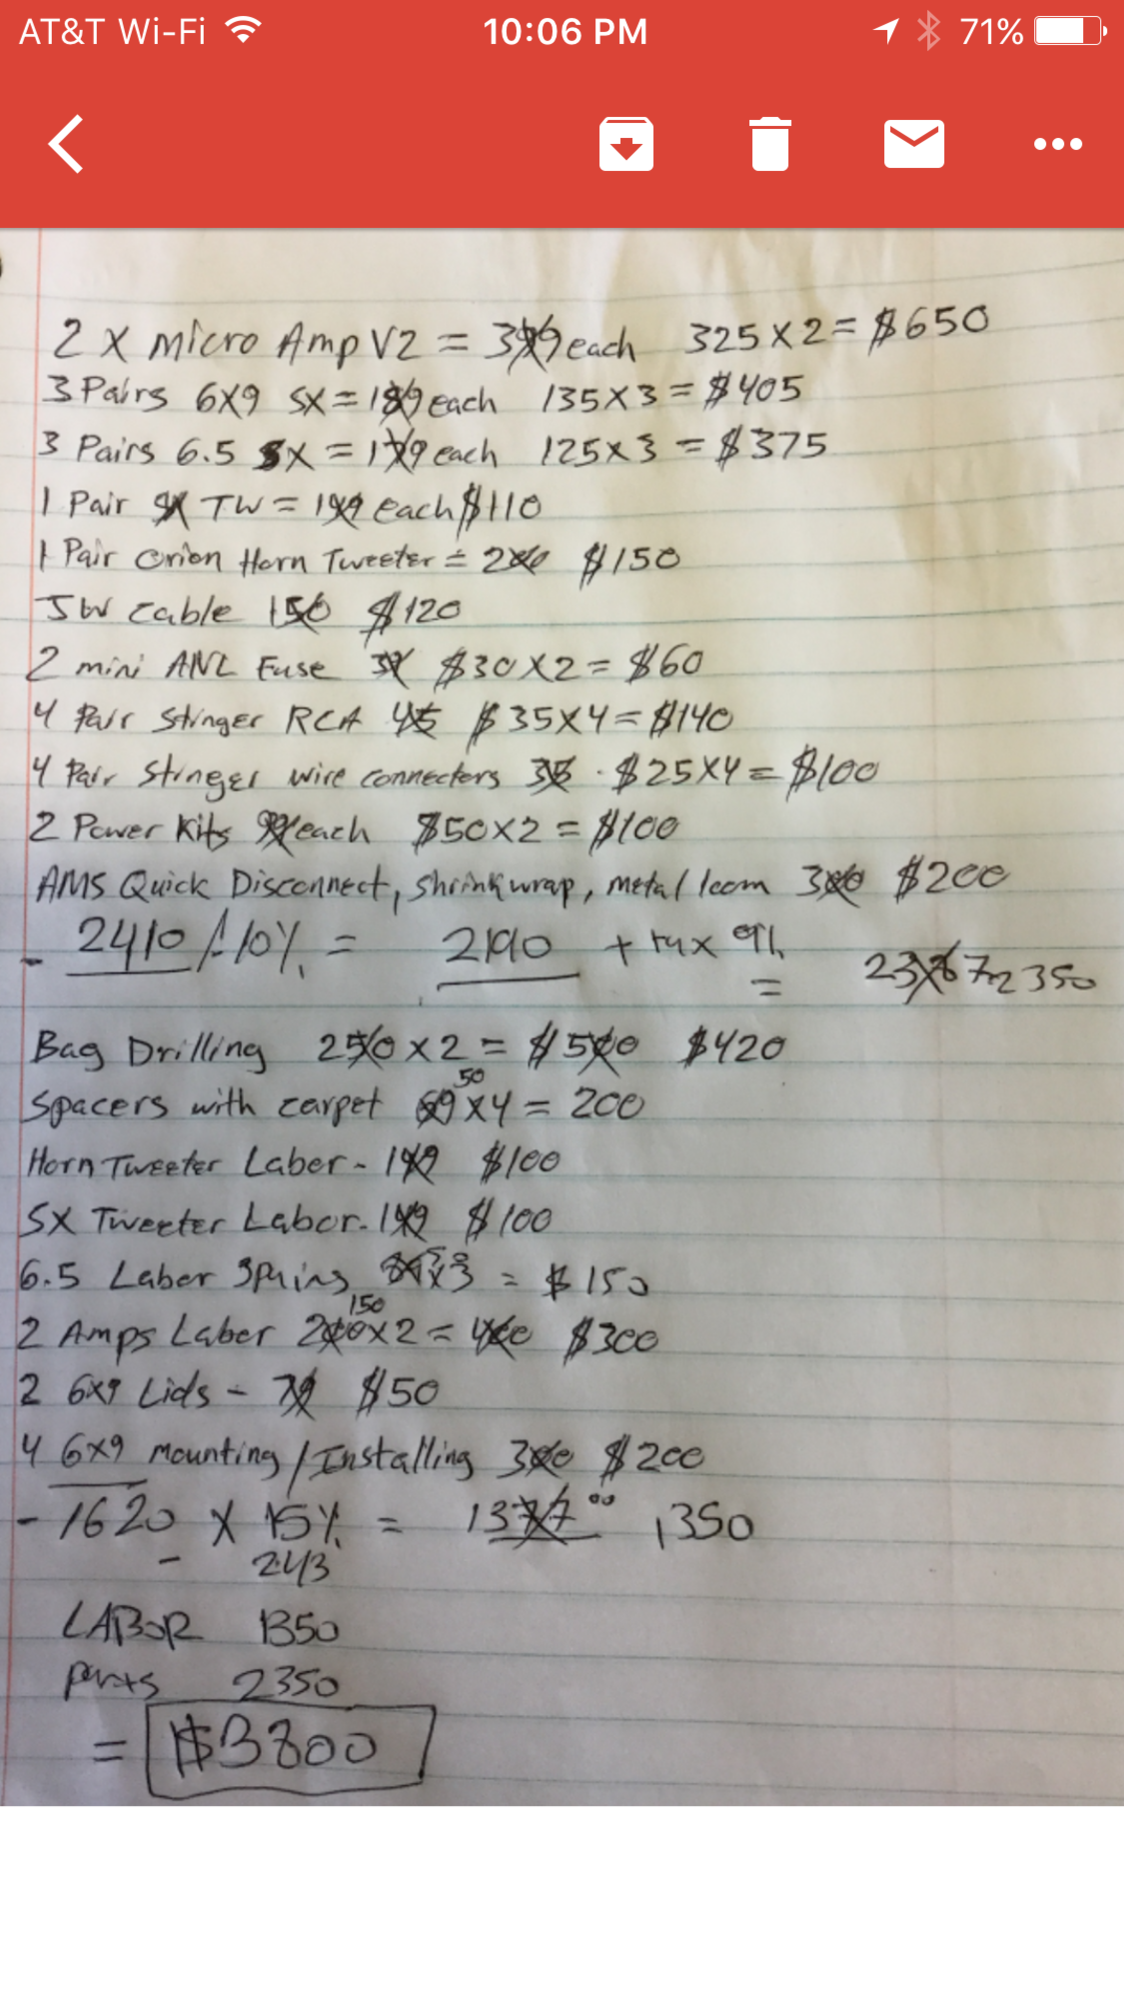 AT&T Wi-Fi 10:06 PM 71%
2 X Micro Amp V2 = 399 each 325 X 2 = $650
3 Pairs 6X9 SX = 189 each 135 X 3 = $405
3 Pairs 6.5 SX = 179 each 125 x 3 = $375
1 Pair SX TW = 149 each $110
1 Pair Orion Horn Tweeter = 200 $150
5W Cable 150 $120
2 mini ANL Fuse $30 X 2 = $60
4 Pair Stinger RCA 45 $35 X 4 = $140
4 Pair Stinger wire connectors 35 $25 X 4 = $100
2 Power Kits 99 each $50 X 2 = $100
AMS Quick Disconnect, shrinkwrap, metal loom 300 $200
- 2410 /-10% = + tax 9%
= 2350
Bag Drilling 250 x 2 = $500 $420
Spacers with carpet 69 50 x 4 = 200
Horn Tweeter Labor - 149 $100
SX Tweeter Labor - 149 $100
6.5 Labor 3pairs x 3 = $150
2 Amps Labor 200 150 x 2 = 400 $300
2 6x9 Lids - 79 $50
4 6x9 mounting / Installing 300 $200
- 1620 X 15% = 1377 00 1350
- 243
LABOR 1350
Parts 2350
= $3800